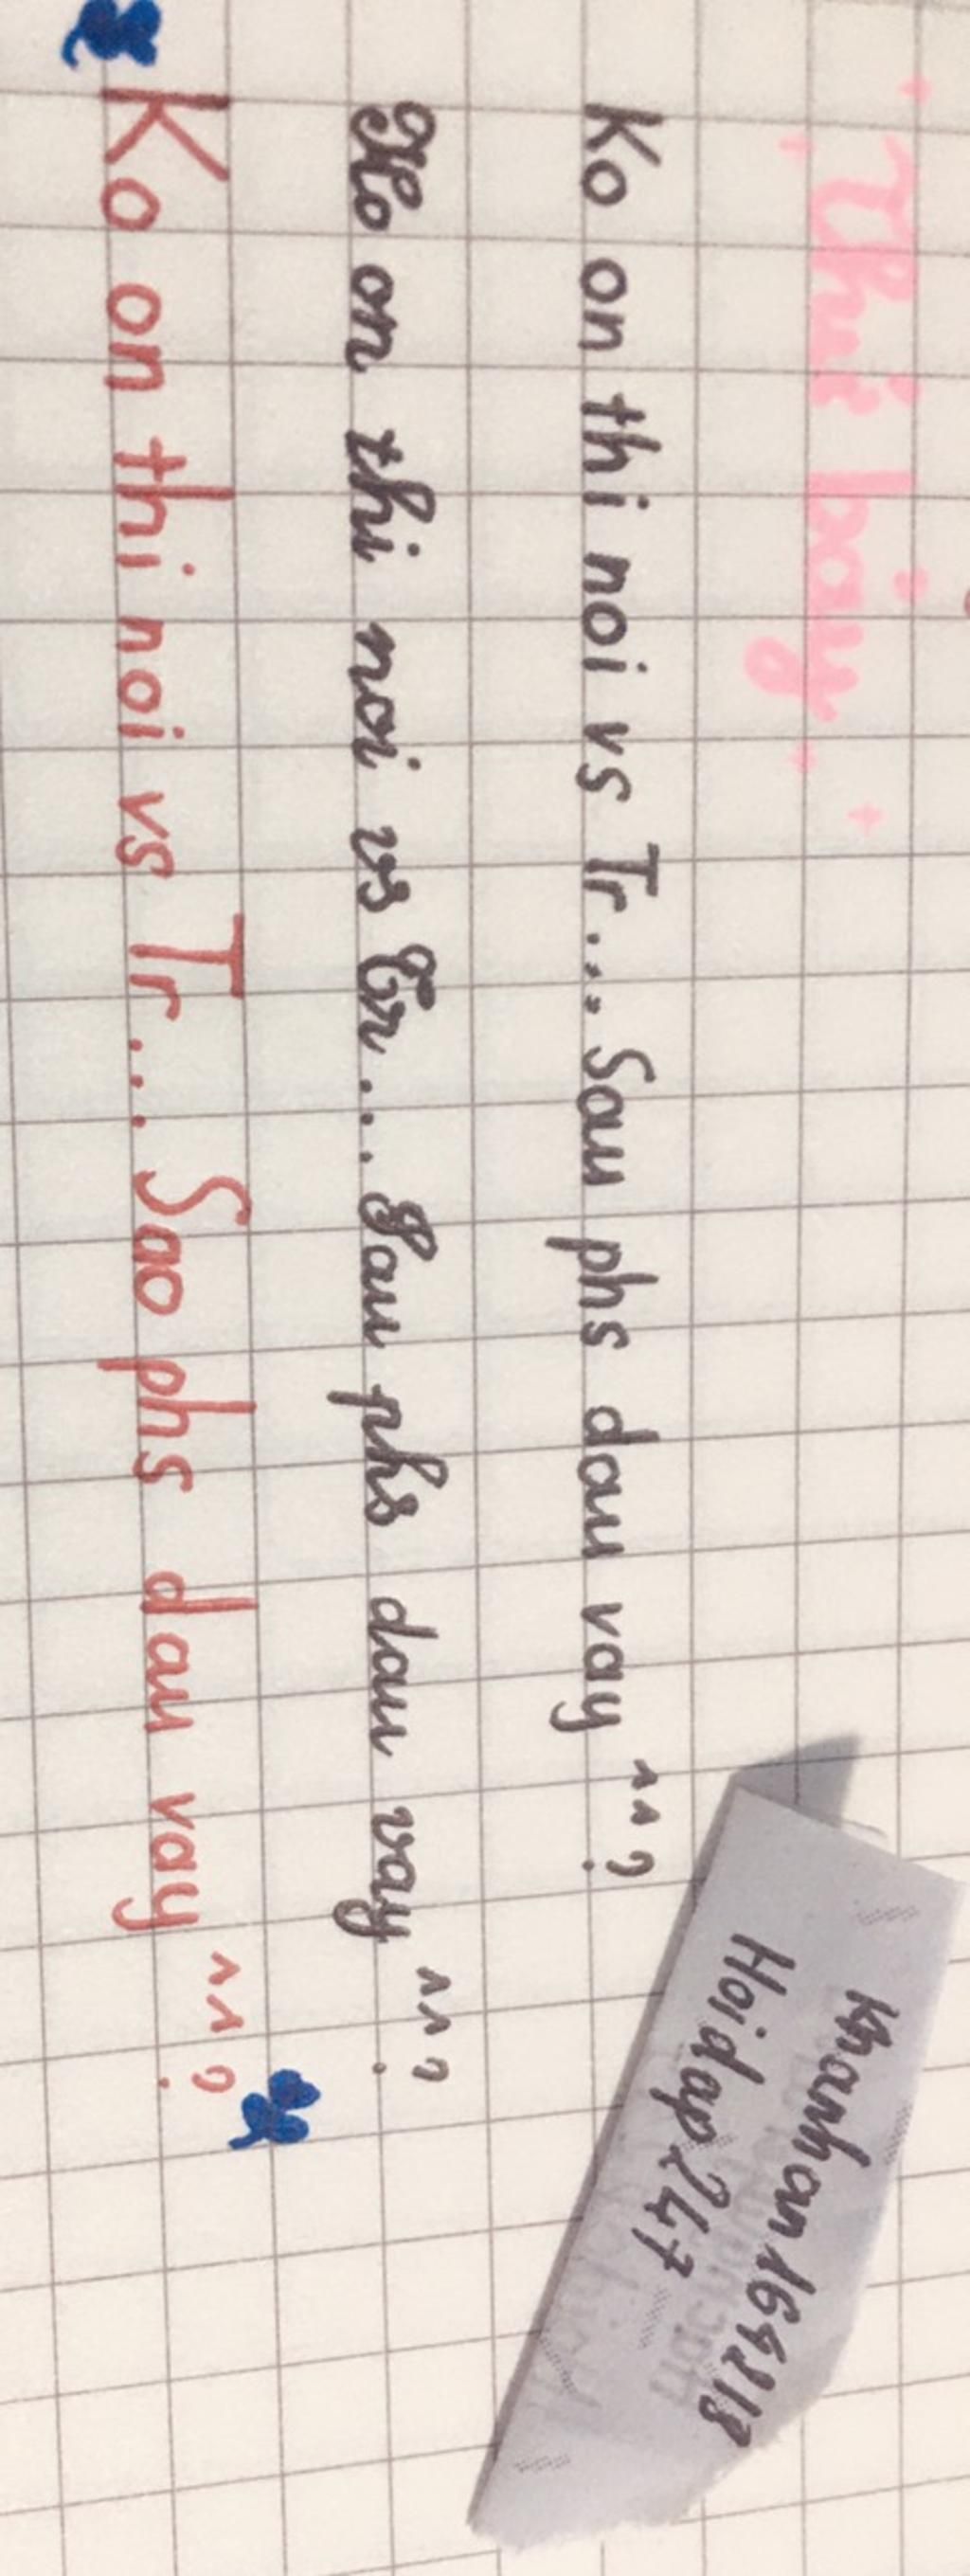 Thi bày
Ko on thi noi vs Tr... Sau phs dau vay ^^?
Ko on thi noi vs Tr... Sau phs dau vay ^^?
Ko on thi noi vs Tr... Sao phs dau vay ^^?
Khanhan164218
Hoidap247